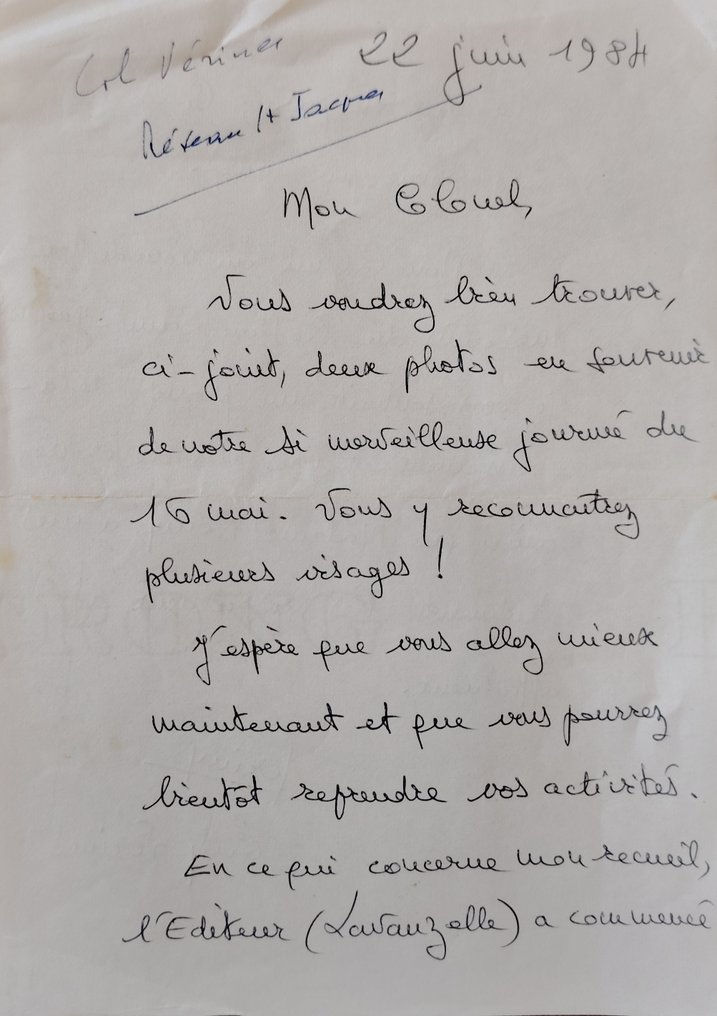 Col Vérines 22 juin 1984
Réseau St Jacques
Mon Colonel,
Vous voudrez bien trouver,
ci-joint, deux photos en souvenir
de notre si merveilleuse journée du
16 mai. Vous y reconnaîtrez
plusieurs visages !
J'espère que vous allez mieux
maintenant et que vous pourrez
bientôt reprendre vos activités.
En ce qui concerne mon recueil,
l'Editeur (Lavauzelle) a commencé